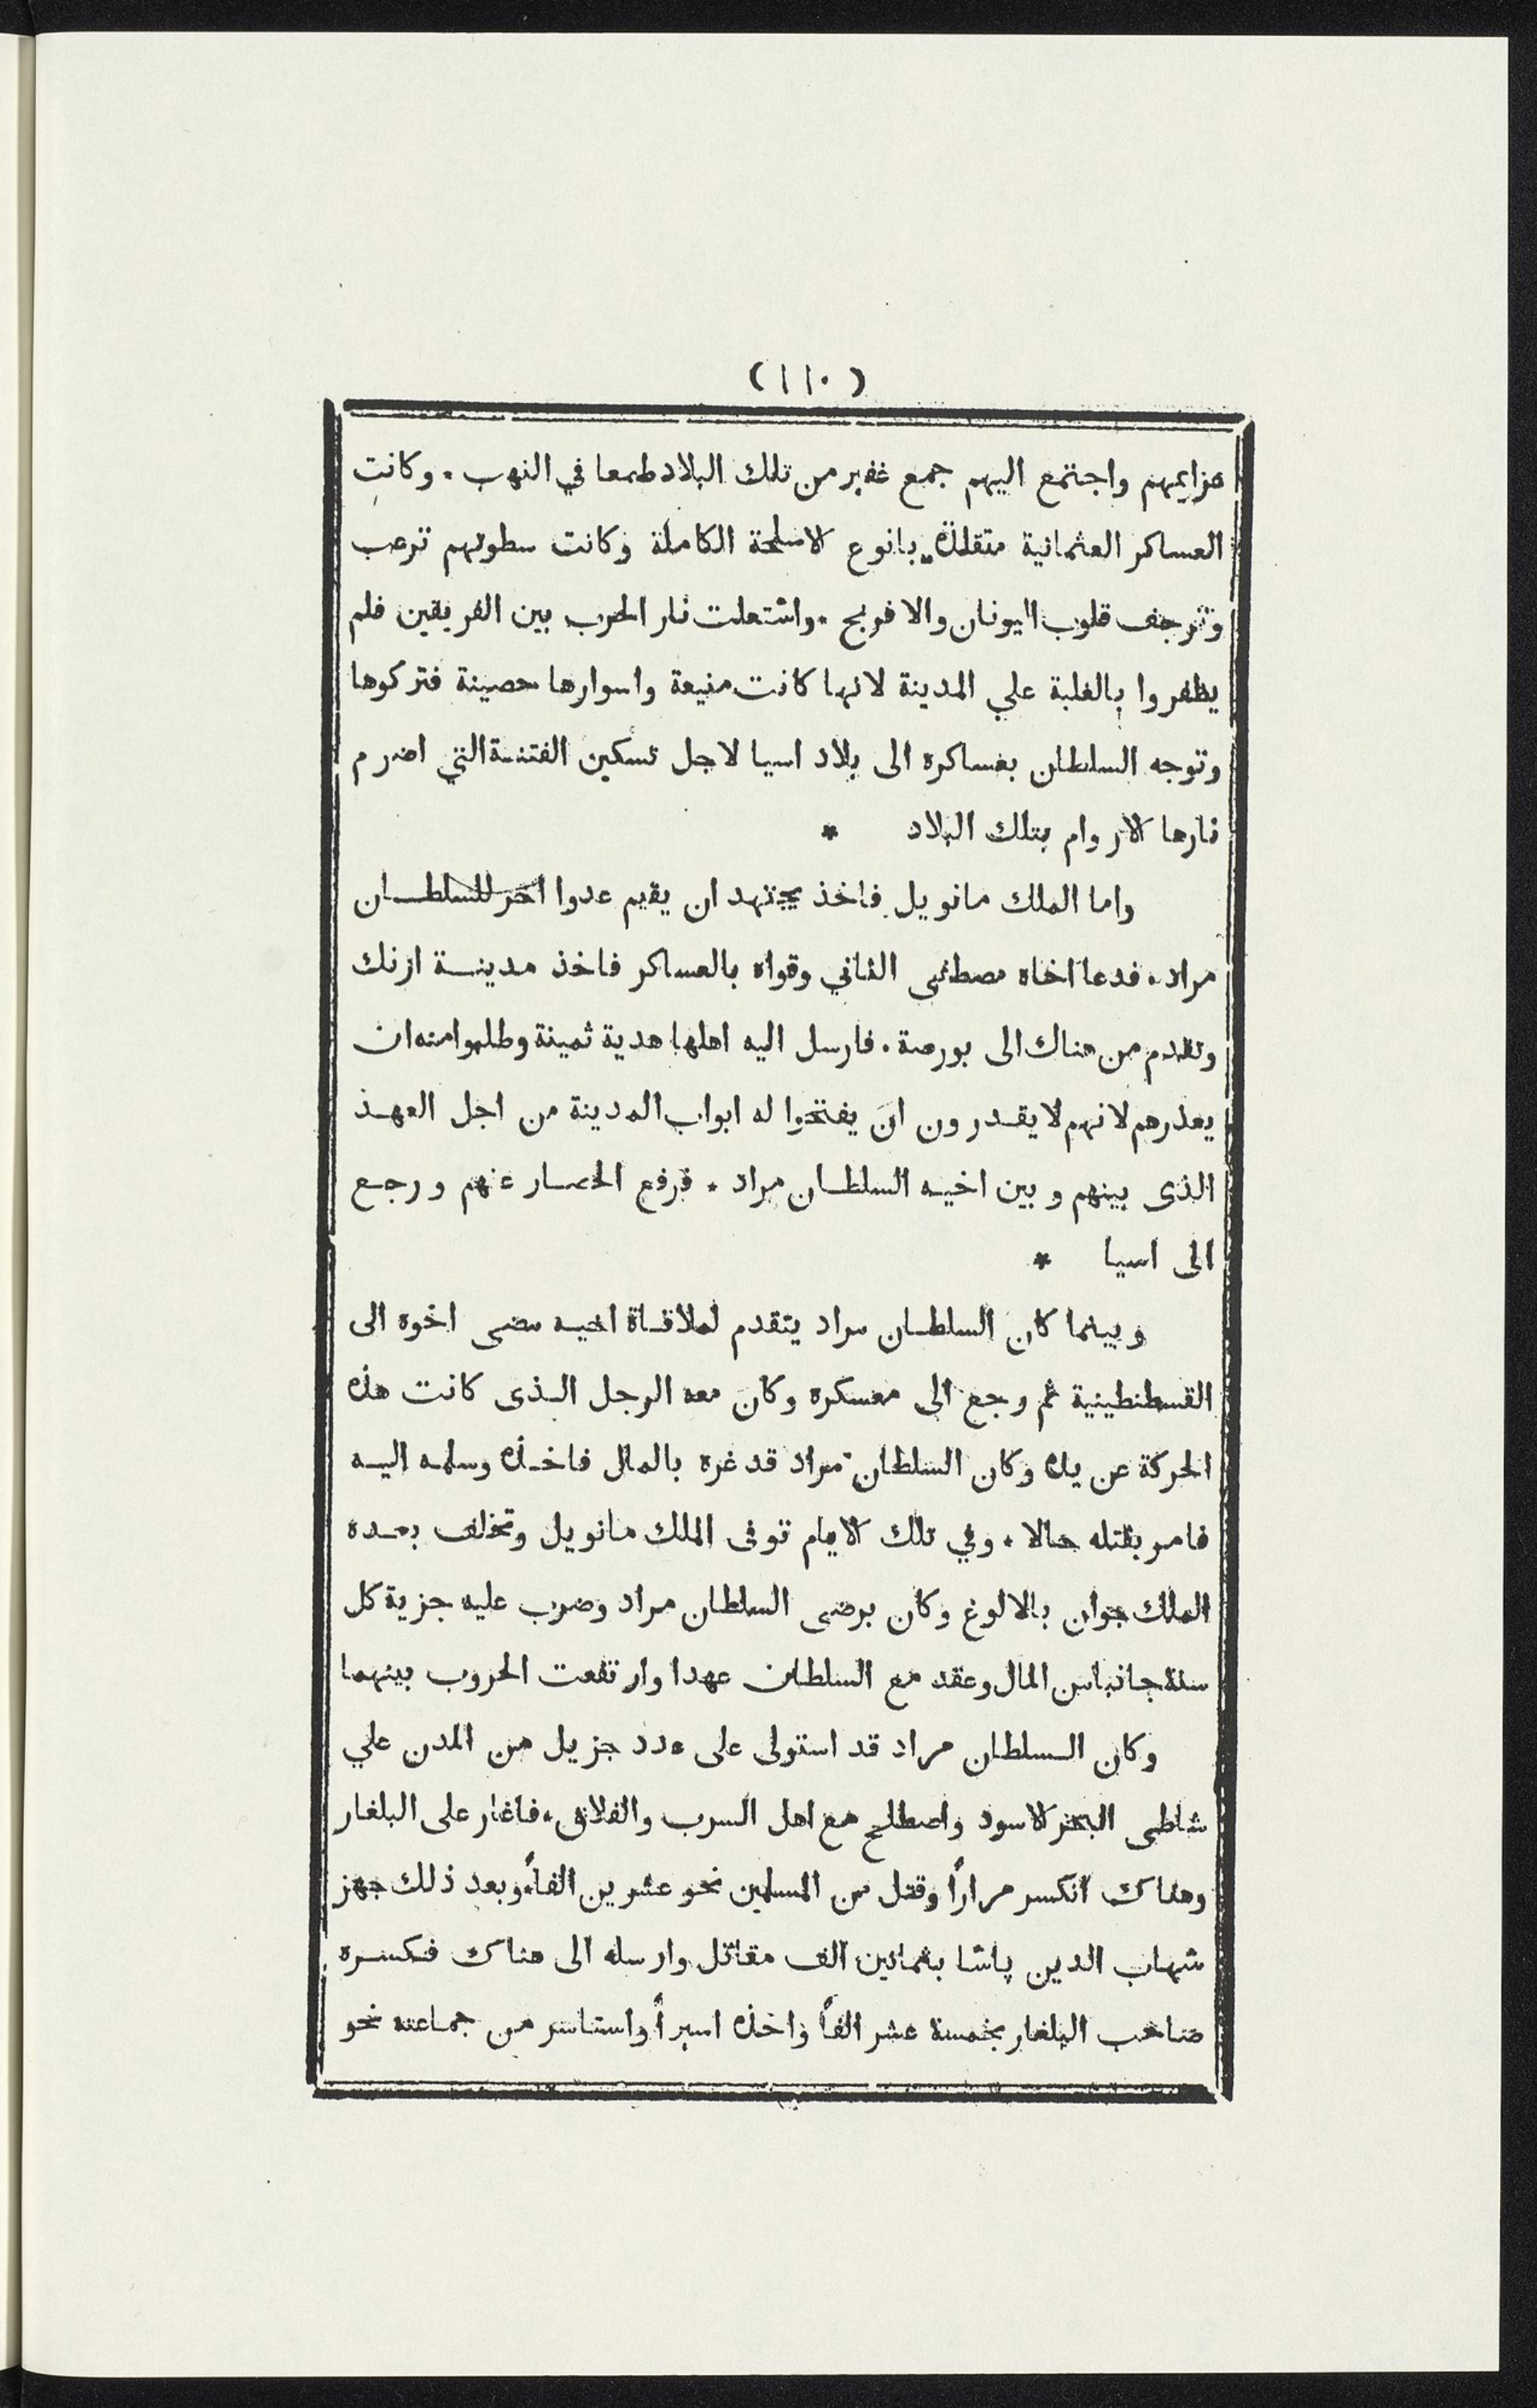 (١١٠)
عزايمهم واجتمع اليهم جمع غفير من تلك البلاد طمعا في النهب ٠ وكانت
العساكر العثمانية متقلدة بانوع الاسلحة الكاملة وكانت سطوتهم ترعب
وترجف قلوب اليونان والافرنج ٠ واشتعلت نار الحرب بين الفريقين فلم
يظفروا بالغلبة علي المدينة لانها كانت منيعة واسوارها حصينة فتركوها
وتوجه السلطان بعساكره الى بلاد اسيا لاجل تسكين الفتنة التي اضرم
نارها الاروام بتلك البلاد *
واما الملك مانويل فاخذ يجتهد ان يقيم عدوا اخر للسلطان
مراد ٠ فدعا اخاه مصطفى الثاني وقواه بالعساكر فاخذ مدينة ازنك
وتقدم من هناك الى بورصة ٠ فارسل اليه اهلها هدية ثمينة وطلبوا منه ان
يعذرهم لانهم لا يقدرون ان يفتحوا له ابواب المدينة من اجل العهد
الذى بينهم وبين اخيه السلطان مراد ٠ فرفع الحصار عنهم ورجع
الى اسيا *
وبينما كان السلطان مراد يتقدم لملاقاة اخيه مضى اخوه الى
القسطنطينية ثم رجع الى معسكره وكان معه الرجل الذى كانت هذه
الحركة عن يده وكان السلطان مراد قد غره بالمال فاخذه وسلمه اليه
فامر بقتله حالا ٠ وفي تلك الايام توفى الملك مانويل وتخلف بعده
الملك جوان بالالوغ وكان برضى السلطان مراد وضرب عليه جزية كل
سنة جانبا من المال وعقد مع السلطان عهدا وارتفعت الحروب بينهما
وكان السلطان مراد قد استولى على عدد جزيل من المدن علي
شاطى البحر الاسود واصطلح مع اهل السرب والفلاق ٠ فاغار على البلغار
وهناك انكسر مرارًا وقتل من المسلمين نحو عشرين الفاً وبعد ذلك جهز
شهاب الدين پاشا بثمانين الف مقاتل وارسله الى هناك فكسره
صاحب البلغار بخمسة عشر الفاً واخذه اسيراً واستاسر من جماعته نحو